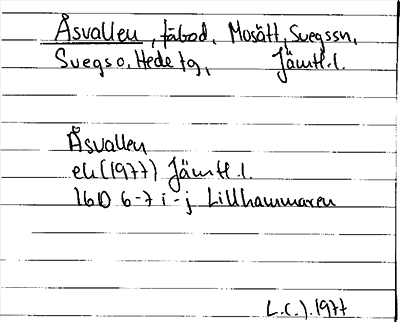 Åsvallen, fäbod, Mosätt, Svegssn,
Svegs o. Hede tg, Jämtl.l.
Åsvallen
ek (1977) Jämtl.l.
16D 6-7 i-j Lillhammaren
L.C.J. 1977